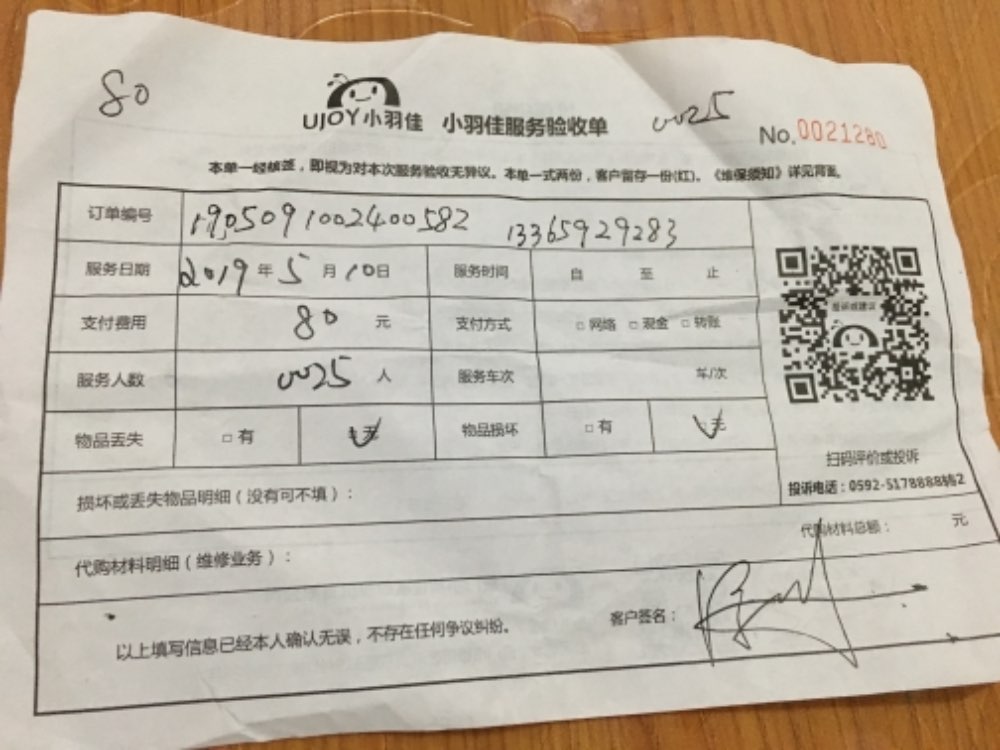 80
UJOY小羽佳 小羽佳服务验收单 0025 No.0021280
本单一经核签，即视为对本次服务验收无异议。本单一式两份，客户留存一份(红)。《维保须知》详见背面
订单编号 1905091002400582 13365929283
服务日期 2019年5月10日 服务时间 自 至 止
支付费用 80 元 支付方式 □网络 □现金 □转账
服务人数 0025 人 服务车次 车/次
物品丢失 □有 □无 物品损坏 □有 □无
扫码评价或投诉
投诉电话：0592-5178888转2
损坏或丢失物品明细（没有可不填）：
代购材料总额： 元
代购材料明细（维修业务）：
以上填写信息已经本人确认无误，不存在任何争议纠纷。 客户签名：